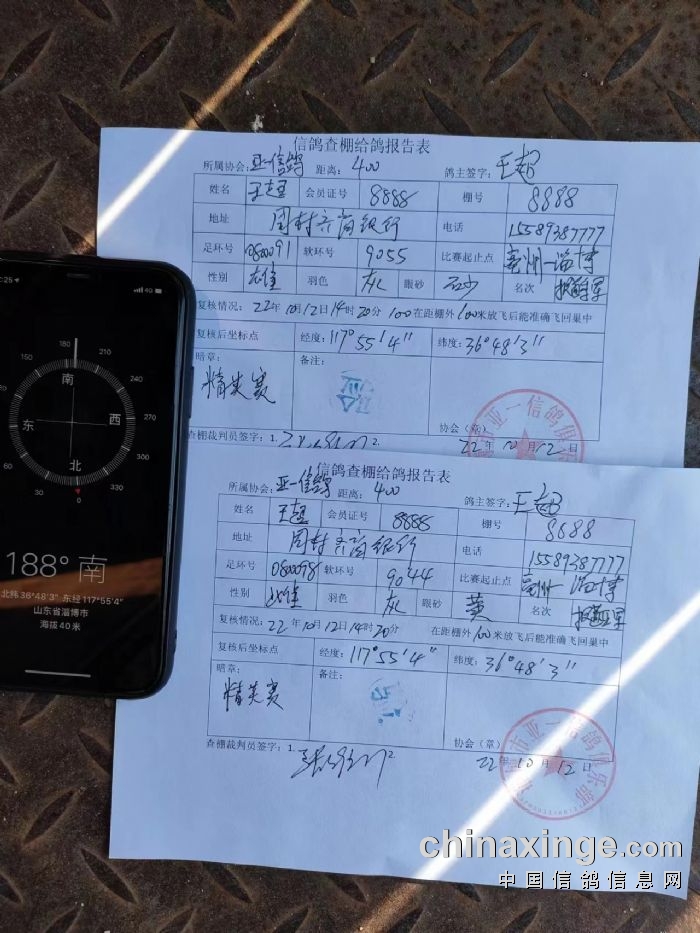 信鸽查棚给鸽报告表
所属协会: 亚一信鸽 距离: 400 鸽主签字: 王超
姓名 王超 会员证号 8888 棚号 8888
地址 周村齐商银行 电话 15589387777
足环号 0800091 软环号 9055 比赛起止点 亳州—淄博
性别 雄 羽色 灰 眼砂 砂 名次
复核情况: 22年10月12日14时20分 100 在距棚外100米放飞后能准确飞回巢中
复核后坐标点 经度: 117°55'4" 纬度: 36°48'3"
暗章: 精英赛 备注:
协会(章)
查棚裁判员签字: 1. 2. 22年10月12日
信鸽查棚给鸽报告表
所属协会: 亚一信鸽 距离: 400 鸽主签字: 王超
姓名 王超 会员证号 8888 棚号 8888
地址 周村齐商银行 电话 15589387777
足环号 0800098 软环号 9044 比赛起止点 亳州—淄博
性别 羽色 灰 眼砂 黄 名次
复核情况: 22年10月12日14时20分 在距棚外100米放飞后能准确飞回巢中
复核后坐标点 经度: 117°55'4" 纬度: 36°48'3"
暗章: 精英赛 备注:
协会(章)
查棚裁判员签字: 1. 2. 22年10月12日
市亚一信鸽俱乐部
4G
180
150 210
120 240
270
60 300
30 330
0
南
东 西
北
188° 南
北纬36°48'3" 东经117°55'4"
山东省淄博市
海拔40米
chinaxinge.com
中国信鸽信息网